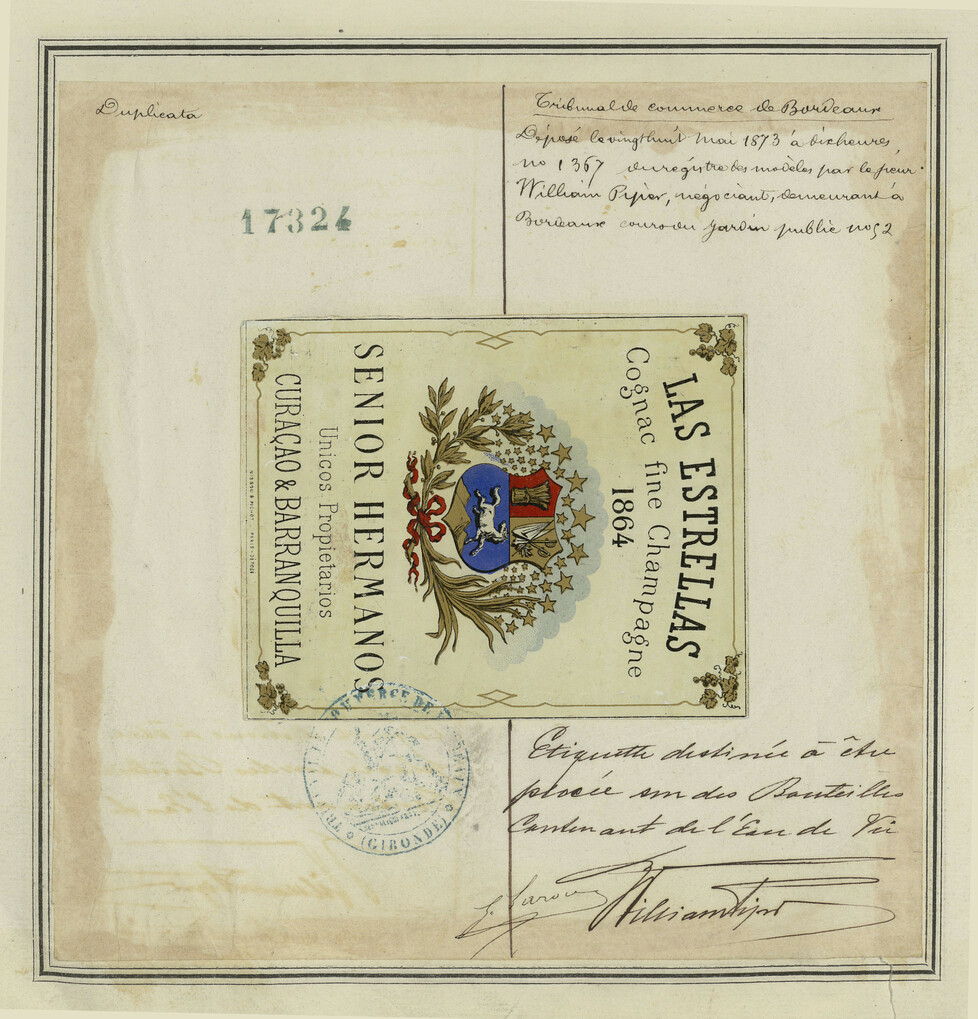 Duplicata
17324
Tribunal de commerce de Bordeaux
Déposé le vingt huit Mai 1873 à dix heures,
no 1367 du registre des modèles par le sieur
William Pipèr, négociant, demeurant à
Bordeaux cours du jardin public no 52
LAS ESTRELLAS
Cognac fine Champagne
1864
SENIOR HERMANOS
Unicos Propietarios
CURAÇAO & BARRANQUILLA
(GIRONDE)
Etiquette destinée à être
placée sur des Bouteilles
Contenant de l'Eau de Vie
William Piper